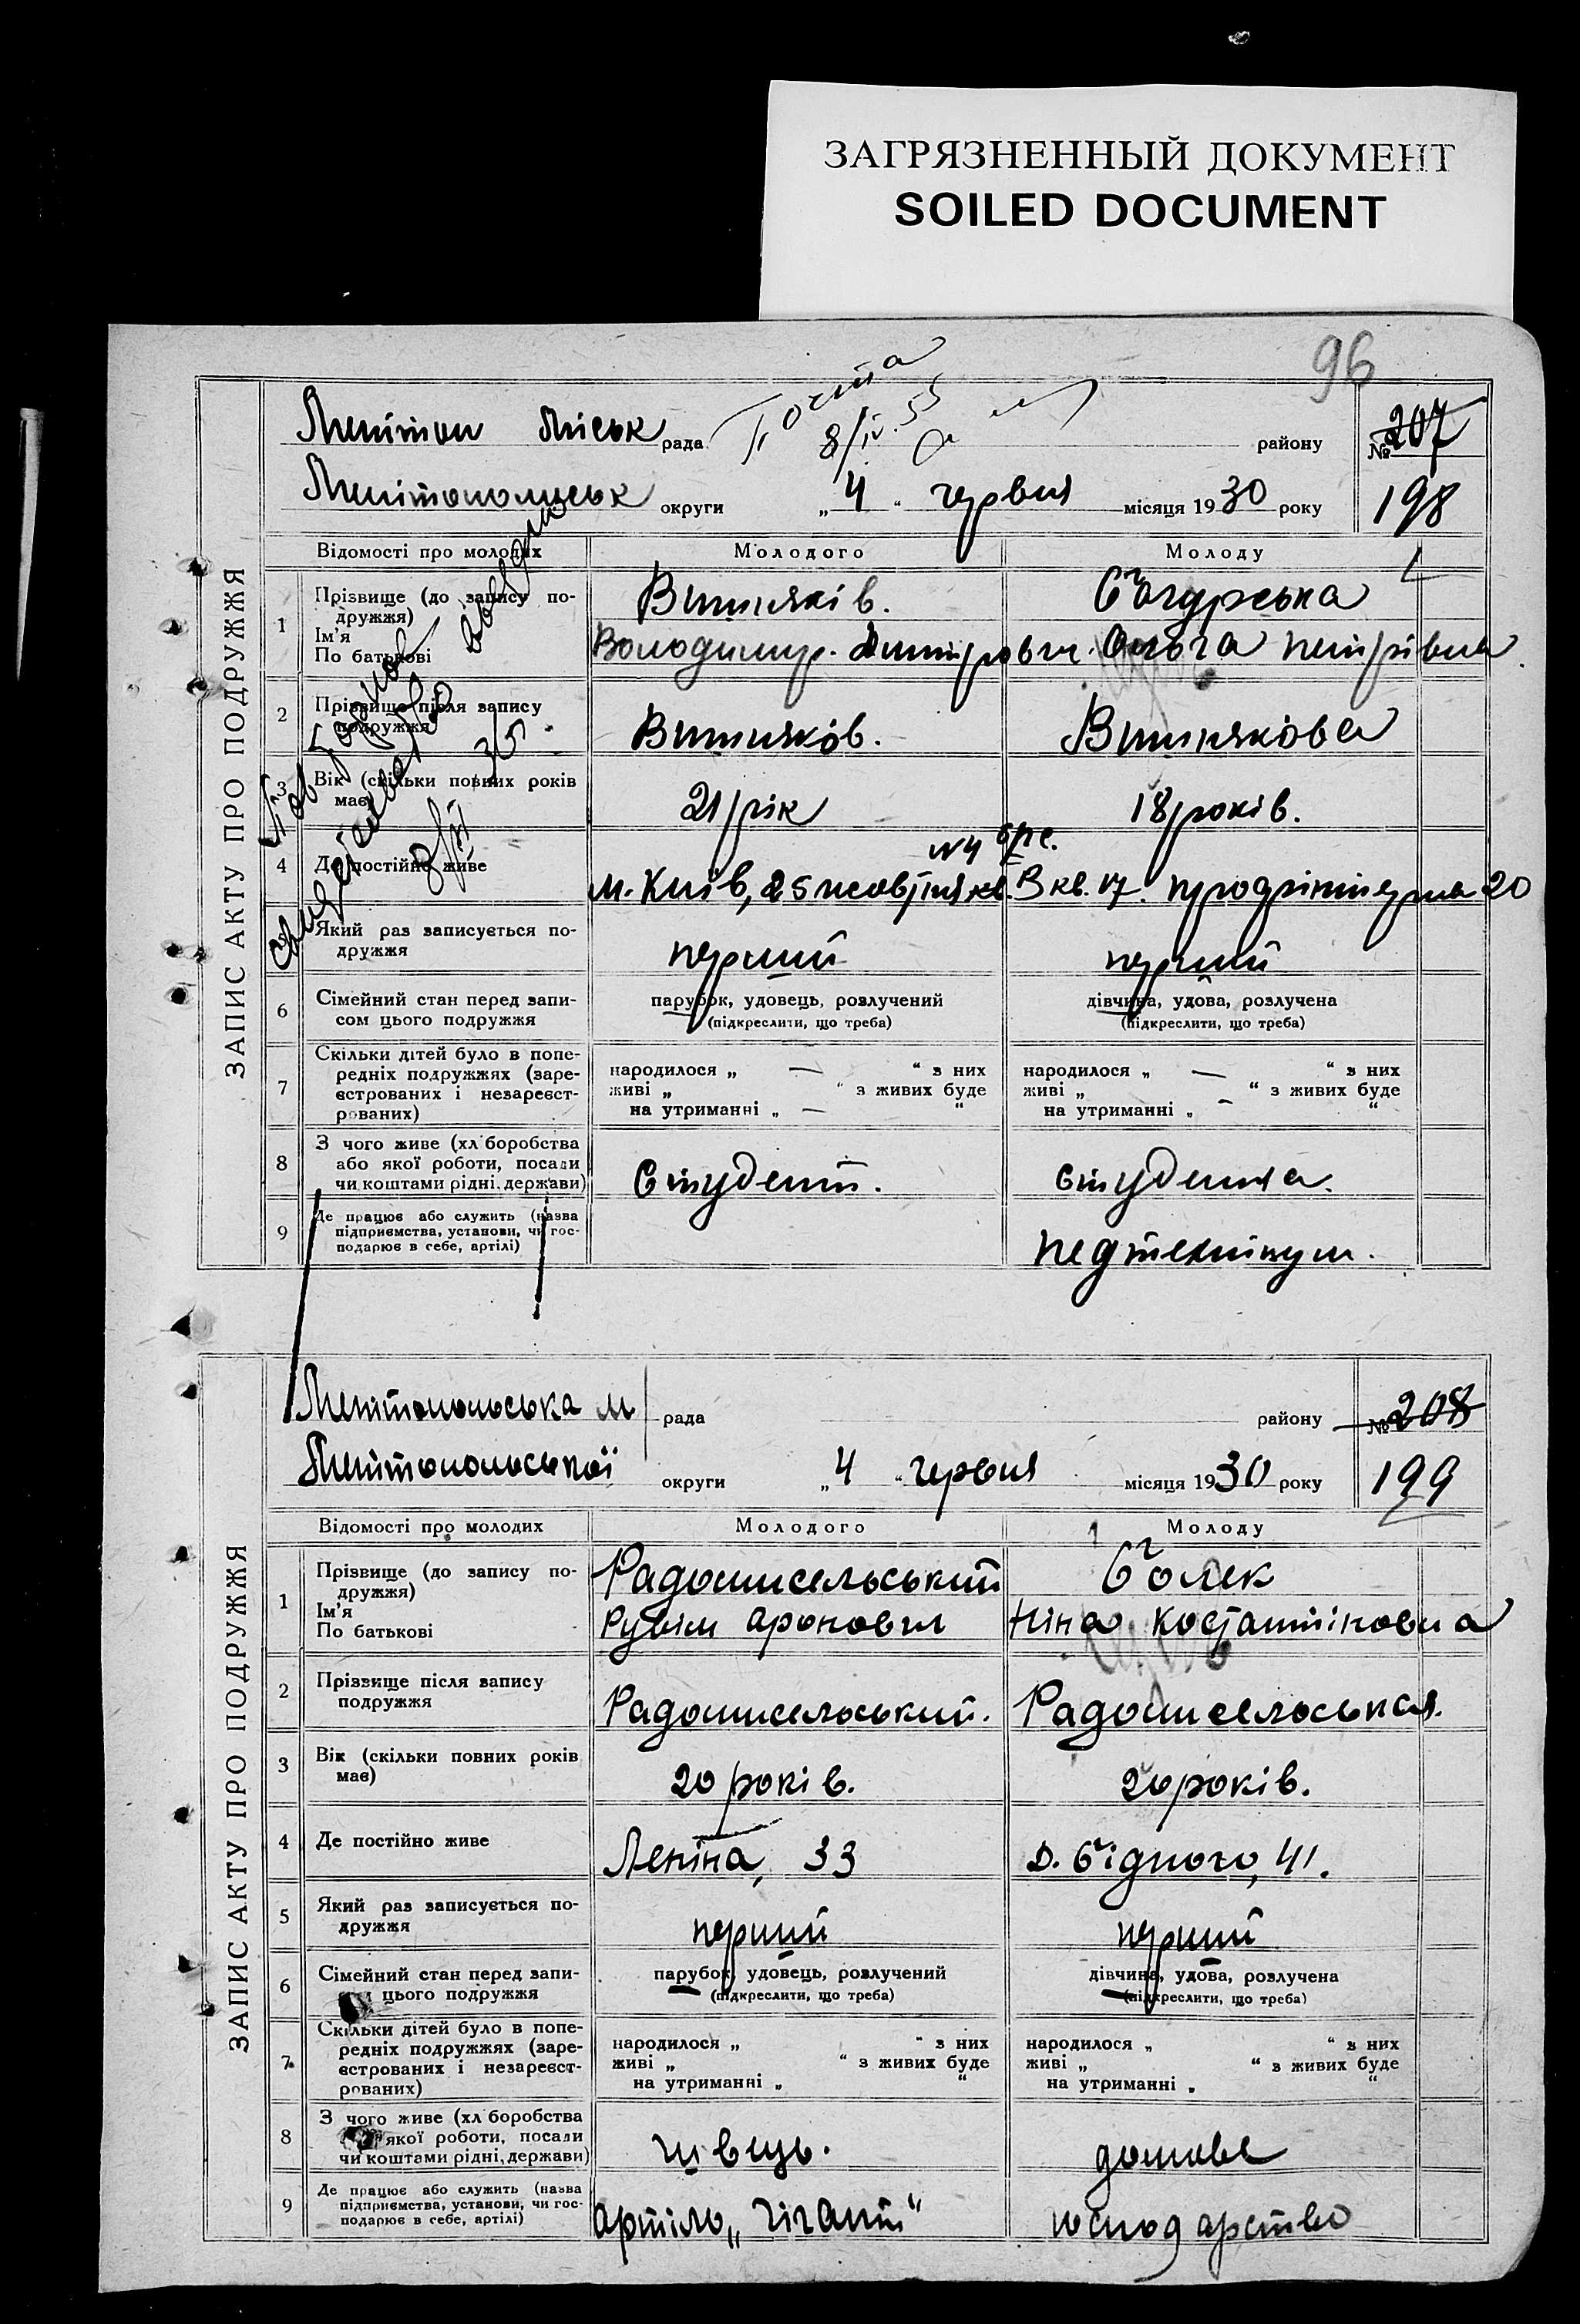 ЗАГРЯЗНЕННЫЙ ДОКУМЕНТ
SOILED DOCUMENT
96
ЗАПИС АКТУ ПРО ПОДРУЖЖЯ
Меліт Міськ рада району № 207
Мелітопольськ округи „4“ червня місяця 1930 року 198
8/IV.55
Відомості про молодих Молодого Молоду
1 Прізвище (до запису подружжя)
Ім'я
По батькові
Вишняків. Бондарська
Володимир Дмитрович Ольга Петрівна
2 Прізвище після запису подружжя Вишняков. Вишнякова
3 Вік (скільки повних років має) 21 рік 18 років.
4 Де постійно живе м. Київ, 25 жовтня
5 Який раз записується подружжя перший перший
6 Сімейний стан перед записом цього подружжя парубок, удовець, розлучений дівчина, удова, розлучена
(підкреслити, що треба) (підкреслити, що треба)
7 Скільки дітей було в попередніх подружжях (зареєстрованих і незареєстрованих)
народилося „ — “ з них народилося „ — “ з них
живі „ “ з живих буде живі „ “ з живих буде
на утриманні „ — “ на утриманні „ - “
8 З чого живе (хліборобства або якої роботи, посади чи коштами рідні, держави) Студент. студентка.
9 Де працює або служить (назва підприємства, установи, чи господарює в себе, артілі) педтехнікум.
ЗАПИС АКТУ ПРО ПОДРУЖЖЯ
Мелітопольська м рада району № 208
Мелітопольської округи „4“ червня місяця 1930 року 199
Відомості про молодих Молодого Молоду
1 Прізвище (до запису подружжя)
Ім'я
По батькові
Радомисельський
Рувім Аронович Ніна Костянтіновна
2 Прізвище після запису подружжя Радомисельський. Радомисельськая.
3 Вік (скільки повних років має) 20 років. 20 років.
4 Де постійно живе Леніна, 33 Д. Бідного, 41.
5 Який раз записується подружжя перший перший
6 Сімейний стан перед записом цього подружжя парубок, удовець, розлучений дівчина, удова, розлучена
(підкреслити, що треба) (підкреслити, що треба)
7 Скільки дітей було в попередніх подружжях (зареєстрованих і незареєстрованих)
народилося „ “ з них народилося „ “ з них
живі „ “ з живих буде живі „ “ з живих буде
на утриманні „ “ на утриманні „ “
8 З чого живе (хліборобства або якої роботи, посади чи коштами рідні, держави) швець. домове
9 Де працює або служить (назва підприємства, установи, чи господарює в себе, артілі) артіль „Гігант“ господарство